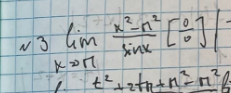 №3 lim x→π (x² - π²)/(sin x) [0/0] |
t² + 2tπ + π² - π²